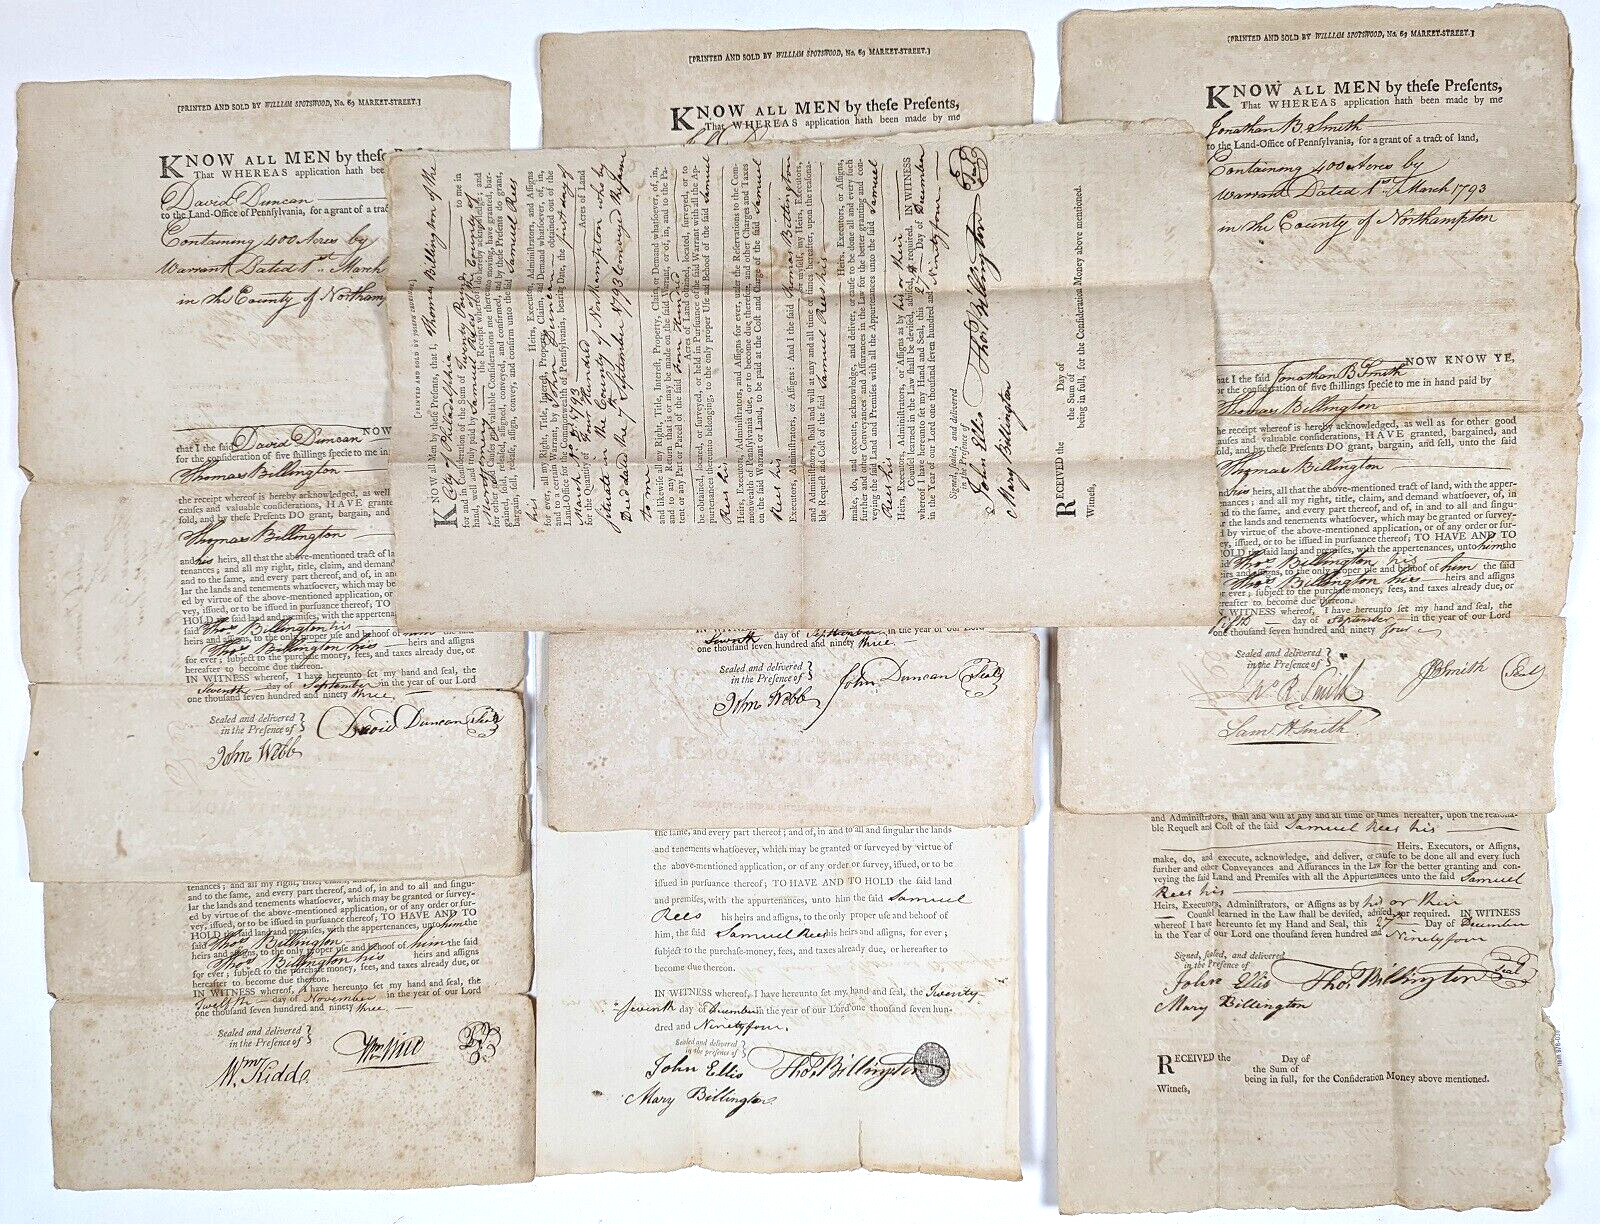 [PRINTED AND SOLD BY WILLIAM SPOTSWOOD, No. 69 MARKET-STREET.]
KNOW ALL MEN by theſe
That WHEREAS application hath been
David Duncan
to the Land-Office of Pennſylvania, for a grant of a tract
Containing 400 Acres by
Warrant Dated 1st March
in the County of Northam
NOW
that I the ſaid David Duncan
for the conſideration of five ſhillings ſpecie to me in
Thomas Billington
the receipt whereof is hereby acknowledged, as well
cauſes and valuable conſiderations, HAVE grant
ſold, and by theſe Preſents DO grant, bargain, and
Thomas Billington
and his heirs, all that the above-mentioned tract of la
tenances; and all my right, title, claim, and demand
and to the ſame, and every part thereof, and of, in an
lar the lands and tenements whatſoever, which may be
ed by virtue of the above-mentioned application, or
vey, iſſued, or to be iſſued in purſuance thereof; TO
HOLD the ſaid land and premiſes, with the appertena
ſaid Thos Billington his
heirs and aſſigns, to the only proper uſe and behoof of him the ſaid
Thos Billington his heirs and aſſigns
for ever; ſubject to the purchaſe money, fees, and taxes already due, or
hereafter to become due thereon.
IN WITNESS whereof, I have hereunto ſet my hand and ſeal, the
Seventh day of September in the year of our Lord
one thouſand ſeven hundred and ninety three.
Sealed and delivered
in the Preſence of
David Duncan Seal
John Webb
tenances; and all my right, title, claim, and
and to the ſame, and every part thereof, and of, in and to all and ſingu-
lar the lands and tenements whatſoever, which may be granted or ſurvey-
ed by virtue of the above-mentioned application, or of any order or ſur-
vey, iſſued, or to be iſſued in purſuance thereof; TO HAVE AND TO
HOLD the ſaid land and premiſes, with the appertenances, unto him the
ſaid Thos Billington
heirs and aſſigns, to the only proper uſe and behoof of him the ſaid
Thos Billington his heirs and aſſigns
for ever; ſubject to the purchaſe money, fees, and taxes already due, or
hereafter to become due thereon.
IN WITNESS whereof, I have hereunto ſet my hand and ſeal, the
Twelfth day of November in the year of our Lord
one thouſand ſeven hundred and ninety three.
Sealed and delivered
in the Preſence of
Wm Kidd
[PRINTED AND SOLD BY WILLIAM SPOTSWOOD, No. 69 MARKET-STREET.]
KNOW ALL MEN by theſe Preſents,
That WHEREAS application hath been made by me
[PRINTED AND SOLD BY JOSEPH CRUKSHANK]
KNOW all Men by theſe Preſents, that I, Thomas Billington of the
City of Philadelphia
for and in Conſideration of the Sum of Twenty Pounds to me in
hand, well and truly paid by Samuel Rees of the County of
Montgomery the Receipt whereof I do hereby acknowledge and
for other good Cauſes and valuable Conſiderations me thereunto moving, have granted, bar-
gained, ſold, releaſed, aſſigned, conveyed, and confirmed, and by theſe Preſents do grant,
bargain, ſell, releaſe, aſſign, convey, and confirm unto the ſaid Samuel Rees
his Heirs, Executors, Adminiſtrators and Aſſigns
for ever, all my Right, Title, Intereſt, Property, Claim, and Demand whatſoever, of, in,
and to a certain Warrant, by John Duncan obtained out of the
Land-Office for the Commonwealth of Pennſylvania, bearing Date, the first day of
March 1793
for the Quantity of Four Hundred Acres of Land
situate in the County of Northampton who by
Deed dated the 7 September 1793 conveyed the same
to me,
and likewiſe all my Right, Title, Intereſt, Property, Claim or Demand whatſoever, of, in,
and to any Return that is or may be made on the ſaid Warrant, or of, in, and to the Pa-
tent or any Part or Parcel of the ſaid Four Hundred
Acres of Land obtained, located, ſurveyed, or to
be obtained, located, or ſurveyed, or held in Purſuance of the ſaid Warrant with all the Ap-
purtenances thereunto belonging, to the only proper Uſe and Behoof of the ſaid Samuel
Rees his
Heirs, Executors, Adminiſtrators, and Aſſigns for ever, under the Reſervations to the Com-
monwealth of Pennſylvania due, or to become due therefor, and other Charges and Taxes
on the ſaid Warrant or Land, to be paid at the Coſt and Charge of the ſaid Samuel
Rees his
Executors, Adminiſtrators, or Aſſigns: And I the ſaid Thomas Billington
for myſelf, my Heirs, Executors,
and Adminiſtrators, ſhall and will at any and all time or times hereafter, upon the reaſona-
ble Requeſt and Coſt of the ſaid Samuel Rees his
Heirs, Executors, or Aſſigns,
make, do, and execute, acknowledge, and deliver, or cauſe to be done all and every ſuch
further and other Conveyances and Aſſurances in the Law for the better granting and con-
veying the ſaid Land and Premiſes with all the Appurtenances unto the ſaid Samuel
Rees his
Heirs, Executors, Adminiſtrators, or Aſſigns as by his or their
Counſel learned in the Law ſhall be deviſed, adviſed, or required. IN WITNESS
whereof I have hereunto ſet my Hand and Seal, this 27th Day of December
in the Year of our Lord one thouſand ſeven hundred and Ninety four
Signed, ſealed, and delivered
in the Preſence of
John Ellis Thos Billington Seal
Mary Billington
RECEIVED the Day of
the Sum of
being in full, for the Conſideration Money above mentioned.
Witneſs,
IN WITNESS whereof, I have hereunto ſet my hand and ſeal, the
Seventh day of September in the year of our Lord
one thouſand ſeven hundred and ninety three.
Sealed and delivered
in the Preſence of
John Duncan Seal
John Webb
the ſame, and every part thereof; and of, in and to all and ſingular the lands
and tenements whatſoever, which may be granted or ſurveyed by virtue of
the above-mentioned application, or of any order or ſurvey, iſſued, or to be
iſſued in purſuance thereof; TO HAVE AND TO HOLD the ſaid land
and premiſes, with the appertenances, unto him the ſaid Samuel
Rees his heirs and aſſigns, to the only proper uſe and behoof of
him, the ſaid Samuel Rees his heirs and aſſigns, for ever;
ſubject to the purchaſe-money, fees, and taxes already due, or hereafter to
become due thereon.
IN WITNESS whereof, I have hereunto ſet my hand, and ſeal, the Twenty
Seventh day of December in the year of our Lord one thouſand ſeven hun-
dred and Ninety four.
Sealed and delivered
in the preſence of
John Ellis Thos Billington
Mary Billington
[PRINTED AND SOLD BY WILLIAM SPOTSWOOD, No. 69 MARKET-STREET.]
KNOW ALL MEN by theſe Preſents,
That WHEREAS application hath been made by me
Jonathan B. Smith
to the Land-Office of Pennſylvania, for a grant of a tract of land,
Containing 400 Acres by
Warrant Dated 1st March 1793
in the County of Northampton
NOW KNOW YE,
that I the ſaid Jonathan B Smith
for the conſideration of five ſhillings ſpecie to me in hand paid by
Thomas Billington
the receipt whereof is hereby acknowledged, as well as for other good
cauſes and valuable conſiderations, HAVE granted, bargained, and
ſold, and by theſe Preſents DO grant, bargain, and ſell, unto the ſaid
Thomas Billington
and his heirs, all that the above-mentioned tract of land, with the apper-
tenances; and all my right, title, claim, and demand whatſoever, of, in
and to the ſame, and every part thereof, and of, in and to all and ſingu-
lar the lands and tenements whatſoever, which may be granted or ſurvey-
ed by virtue of the above-mentioned application, or of any order or ſur-
vey, iſſued, or to be iſſued in purſuance thereof; TO HAVE AND TO
HOLD the ſaid land and premiſes, with the appertenances, unto him the
Thos Billington his
heirs and aſſigns, to the only proper uſe and behoof of him the ſaid
Thos Billington his heirs and aſſigns
for ever; ſubject to the purchaſe money, fees, and taxes already due, or
hereafter to become due thereon.
IN WITNESS whereof, I have hereunto ſet my hand and ſeal, the
day of September in the year of our Lord
one thouſand ſeven hundred and ninety four
Sealed and delivered
in the Preſence of
Wm R. Smith
JB Smith Seal
Saml H Smith
and Adminiſtrators, ſhall and will at any and all time or times hereafter, upon the reaſona-
ble Requeſt and Coſt of the ſaid Samuel Rees his
Heirs, Executors, or Aſſigns,
make, do, and execute, acknowledge, and deliver, or cauſe to be done all and every ſuch
further and other Conveyances and Aſſurances in the Law for the better granting and con-
veying the ſaid Land and Premiſes with all the Appurtenances unto the ſaid Samuel
Rees his
Heirs, Executors, Adminiſtrators, or Aſſigns as by his or their
Counſel learned in the Law ſhall be deviſed, adviſed, or required. IN WITNESS
whereof I have hereunto ſet my Hand and Seal, this 27 Day of December
in the Year of our Lord one thouſand ſeven hundred and Ninety four
Signed, ſealed, and delivered
in the Preſence of
John Ellis Thos Billington Seal
Mary Billington
RECEIVED the Day of
the Sum of
being in full, for the Conſideration Money above mentioned.
Witneſs,